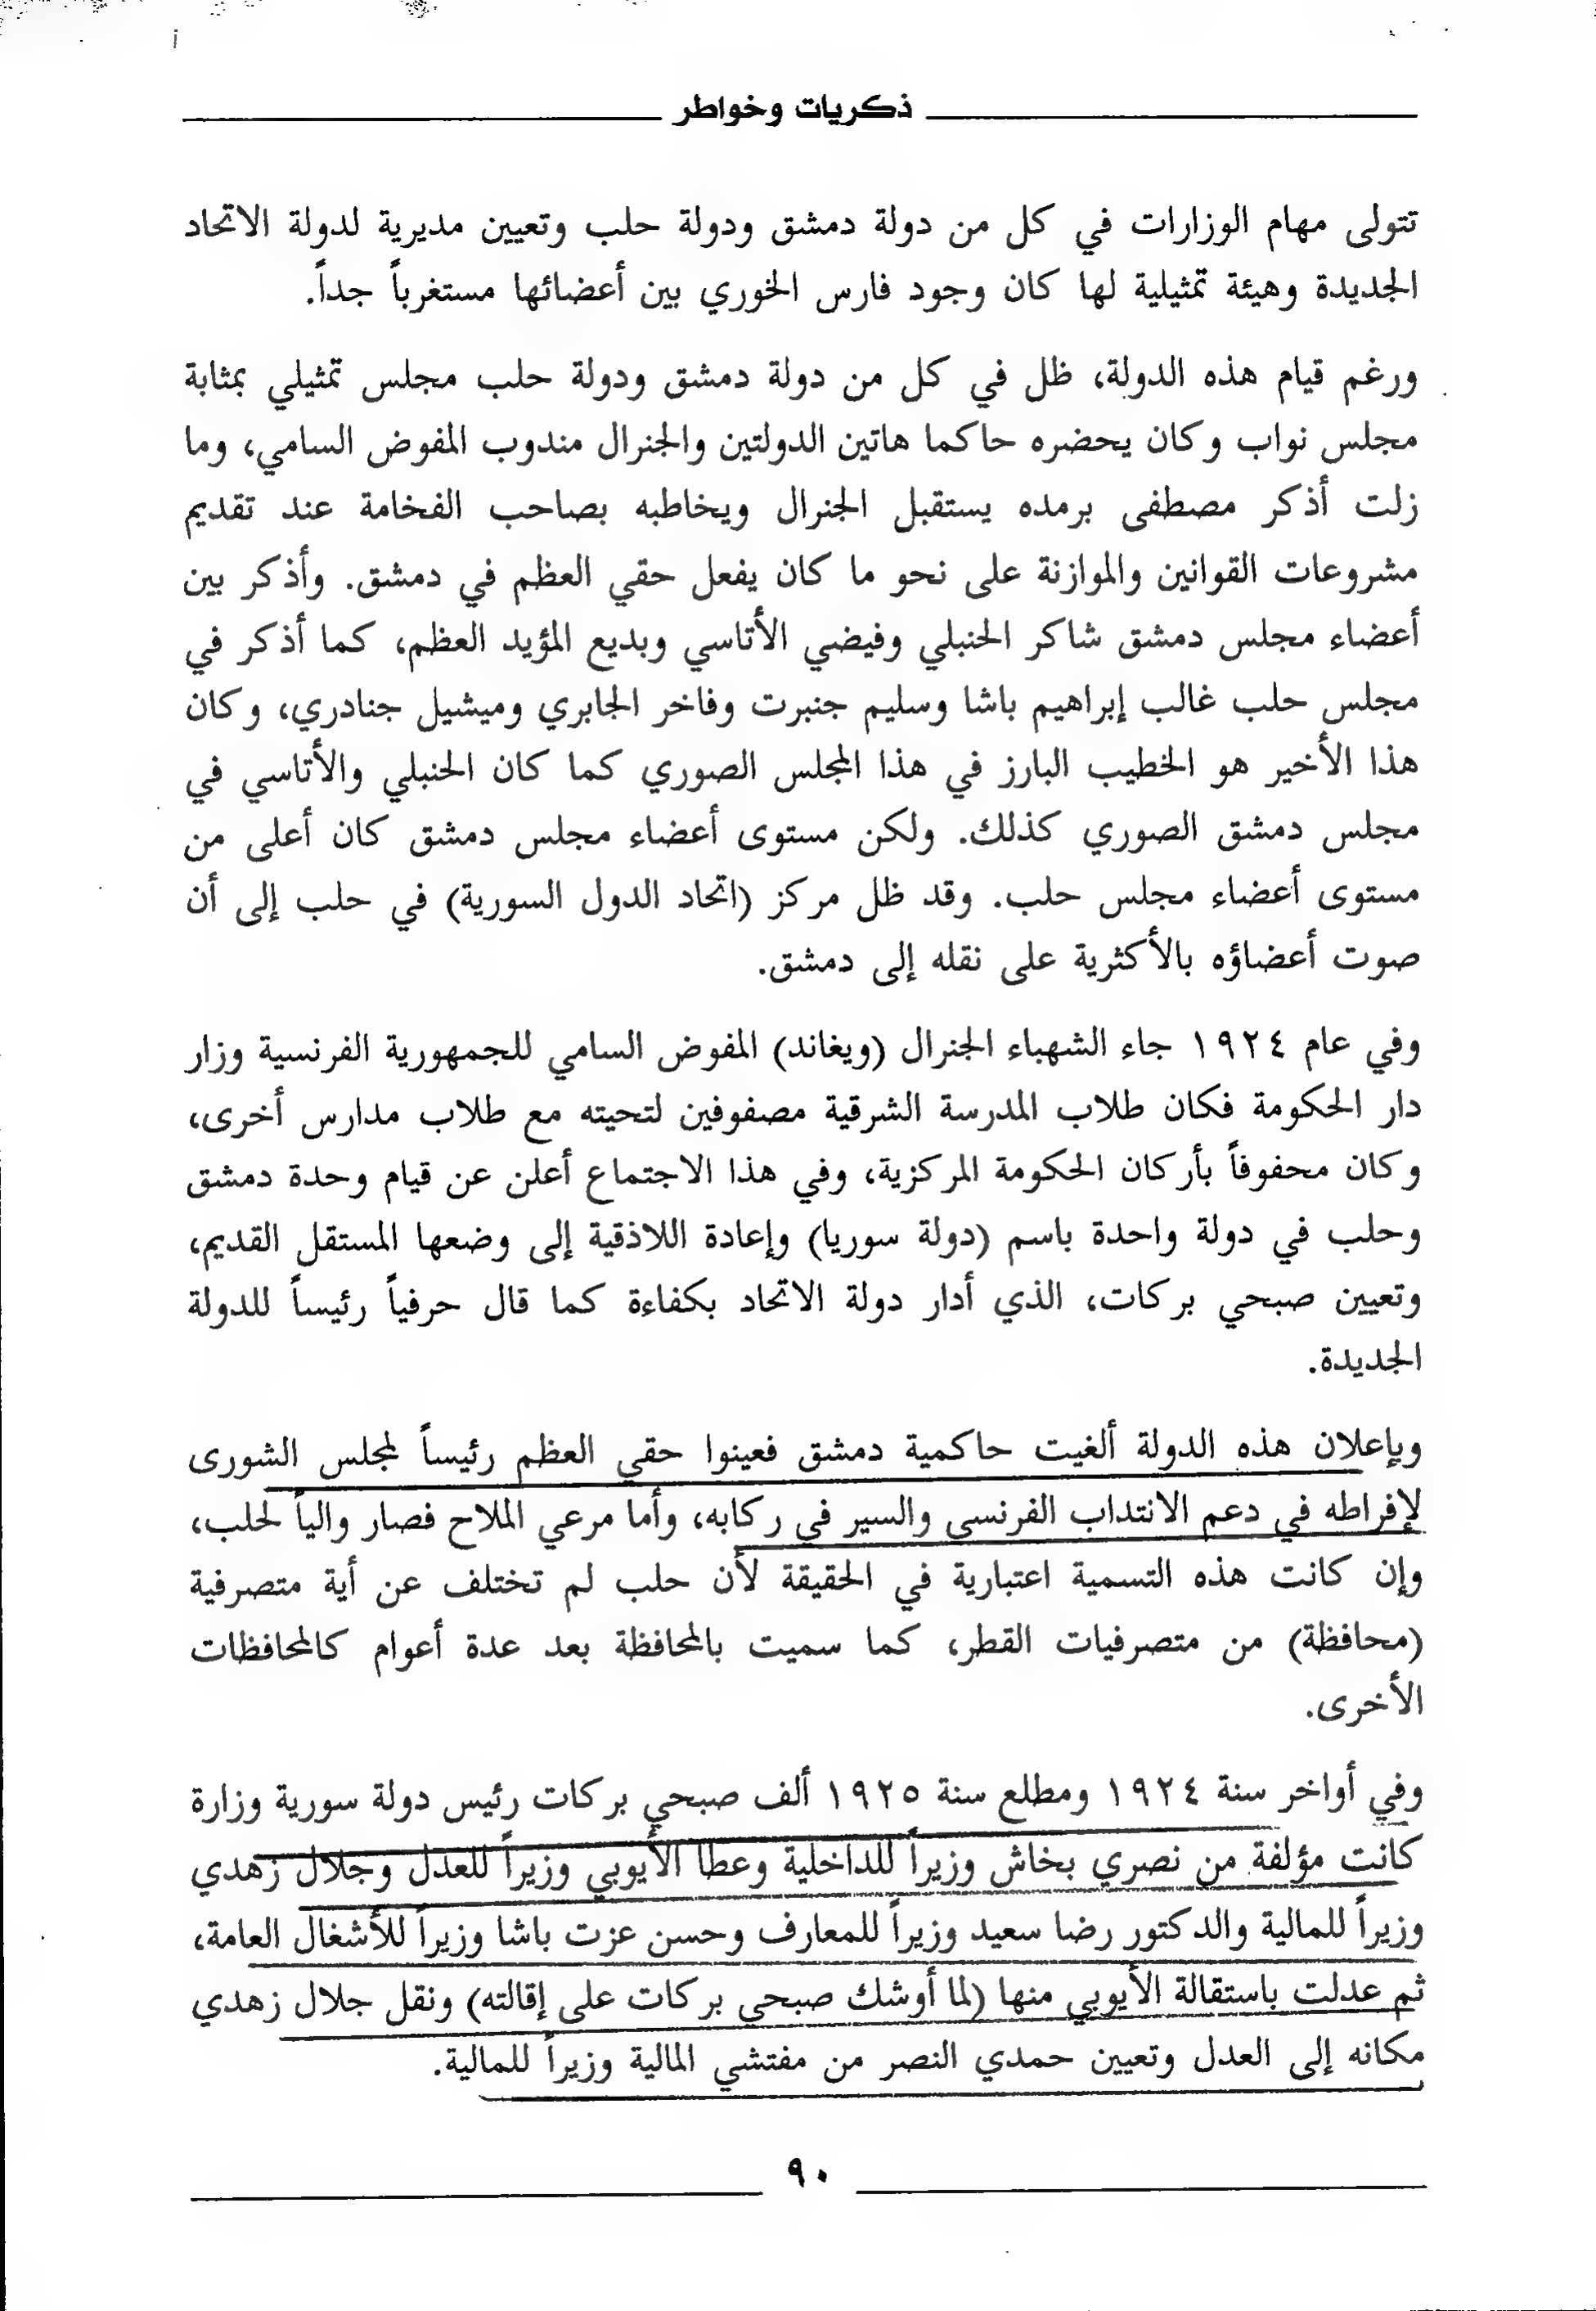 ذكريات وخواطر
تتولى مهام الوزارات في كل من دولة دمشق ودولة حلب وتعيين مديرية لدولة الاتحاد
الجديدة وهيئة تمثيلية لها كان وجود فارس الخوري بين أعضائها مستغرباً جداً.
ورغم قيام هذه الدولة، ظل في كل من دولة دمشق ودولة حلب مجلس تمثيلي بمثابة
مجلس نواب وكان يحضره حاكما هاتين الدولتين والجنرال مندوب المفوض السامي، وما
زلت أذكر مصطفى برمده يستقبل الجنرال ويخاطبه بصاحب الفخامة عند تقديم
مشروعات القوانين والموازنة على نحو ما كان يفعل حقي العظم في دمشق. وأذكر بين
أعضاء مجلس دمشق شاكر الحنبلي وفيضي الأتاسي وبديع المؤيد العظم، كما أذكر في
مجلس حلب غالب إبراهيم باشا وسليم جنبرت وفاخر الجابري وميشيل جنادري، وكان
هذا الأخير هو الخطيب البارز في هذا المجلس الصوري كما كان الحنبلي والأتاسي في
مجلس دمشق الصوري كذلك. ولكن مستوى أعضاء مجلس دمشق كان أعلى من
مستوى أعضاء مجلس حلب. وقد ظل مركز (اتحاد الدول السورية) في حلب إلى أن
صوت أعضاؤه بالأكثرية على نقله إلى دمشق.
وفي عام ١٩٢٤ جاء الشهباء الجنرال (ويغاند) المفوض السامي للجمهورية الفرنسية وزار
دار الحكومة فكان طلاب المدرسة الشرقية مصفوفين لتحيته مع طلاب مدارس أخرى،
وكان محفوفاً بأركان الحكومة المركزية، وفي هذا الاجتماع أعلن عن قيام وحدة دمشق
وحلب في دولة واحدة باسم (دولة سوريا) وإعادة اللاذقية إلى وضعها المستقل القديم،
وتعيين صبحي بركات، الذي أدار دولة الاتحاد بكفاءة كما قال حرفياً رئيساً للدولة
الجديدة.
وبإعلان هذه الدولة ألغيت حاكمية دمشق فعينوا حقي العظم رئيساً لمجلس الشورى
لإفراطه في دعم الانتداب الفرنسي والسير في ركابه، وأما مرعي الملاح فصار والياً لحلب،
وإن كانت هذه التسمية اعتبارية في الحقيقة لأن حلب لم تختلف عن أية متصرفية
(محافظة) من متصرفيات القطر، كما سميت بالمحافظة بعد عدة أعوام كالمحافظات
الأخرى.
وفي أواخر سنة ١٩٢٤ ومطلع سنة ١٩٢٥ ألف صبحي بركات رئيس دولة سورية وزارة
كانت مؤلفة من نصري بخاش وزيراً للداخلية وعطا الأيوبي وزيراً للعدل وجلال زهدي
وزيراً للمالية والدكتور رضا سعيد وزيراً للمعارف وحسن عزت باشا وزيراً للأشغال العامة،
ثم عدلت باستقالة الأيوبي منها (لما أوشك صبحي بركات على إقالته) ونقل جلال زهدي
مكانه إلى العدل وتعيين حمدي النصر من مفتشي المالية وزيراً للمالية.
٩٠